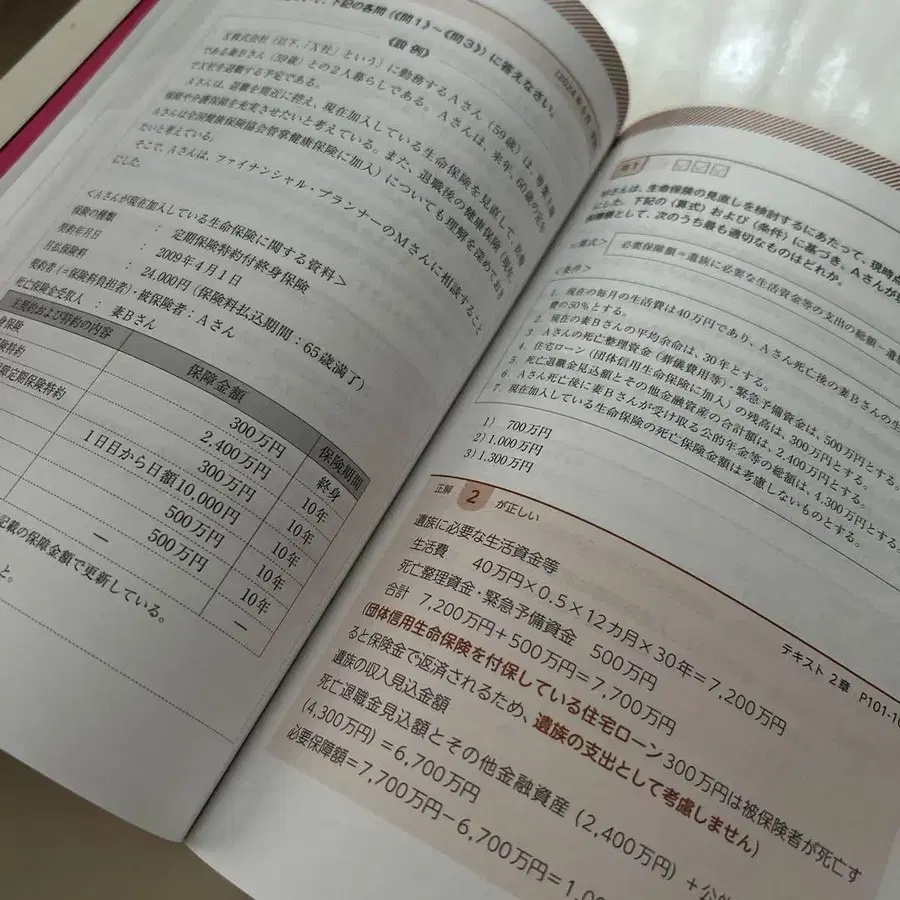 いて、下記の各問（《問1》～《問3》）に答えなさい。
《設 例》
X株式会社（以下、「X社」という）に勤務するAさん（59歳）は、専業主婦
である妻Bさん（59歳）との2人暮らしである。Aさんは、来年、60歳の定年
でX社を退職する予定である。
Aさんは、退職を間近に控え、現在加入している生命保険を見直して、医療
保障や介護保障を充実させたいと考えている。また、退職後の健康保険（現在、
Aさんは全国健康保険協会管掌健康保険に加入）についても理解を深めておき
たいと考えている。
そこで、Aさんは、ファイナンシャル・プランナーのMさんに相談すること
にした。
＜Aさんが現在加入している生命保険に関する資料＞
保険の種類 ： 定期保険特約付終身保険
契約年月日 ： 2009年4月1日
月払保険料 ： 24,000円（保険料払込期間：65歳満了）
契約者（＝保険料負担者）・被保険者：Aさん
死亡保険金受取人 ： 妻Bさん
主契約および特約の内容 保障金額 保険期間
身保険 300万円 終身
険特約 2,400万円 10年
定期保険特約 300万円 10年
1日目から日額10,000円 10年
500万円 10年
500万円 10年
― ―
記載の保障金額で更新している。
と。
問1
Aさんは、生命保険の見直しを検討するにあたって、現時点
にした。下記の〈算式〉および〈条件〉に基づき、Aさんが
次のうち最も適切なものはどれか。
〈算式〉
必要保障額＝遺族に必要な生活資金等の支出の総額－遺族
〈条件〉
1. 現在の毎月の生活費は40万円であり、Aさん死亡後の妻Bさんの生
費の50％とする。
2. 現在の妻Bさんの平均余命は、30年とする。
3. Aさんの死亡整理資金（葬儀費用等）・緊急予備資金は、500万円とする。
4. 住宅ローン（団体信用生命保険に加入）の残高は、300万円とする。
5. 死亡退職金見込額とその他金融資産の合計額は、2,400万円とする。
6. Aさん死亡後に妻Bさんが受け取る公的年金等の総額は、4,300万円とする。
7. 現在加入している生命保険の死亡保険金額は考慮しないものとする。
1) 700万円
2) 1,000万円
3) 1,300万円
正解 2 が正しい
テキスト 2章 P101-10
遺族に必要な生活資金等
生活費 40万円×0.5×12カ月×30年＝7,200万円
死亡整理資金・緊急予備資金 500万円
合計 7,200万円＋500万円＝7,700万円
（団体信用生命保険を付保している住宅ローン300万円は被保険者が死亡す
ると保険金で返済されるため、遺族の支出として考慮しません）
遺族の収入見込金額
死亡退職金見込額とその他金融資産（2,400万円）＋公的
（4,300万円）＝6,700万円
必要保障額＝7,700万円－6,700万円＝1,00